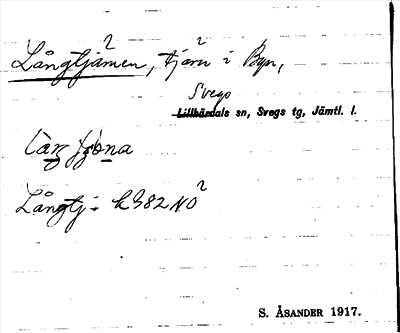 Långtjärnen, tjärn i Byn,
Svegs
Lillhärdals sn, Svegs tg, Jämtl. l.
Långtj- k 382 NO
S. ÅSANDER 1917.